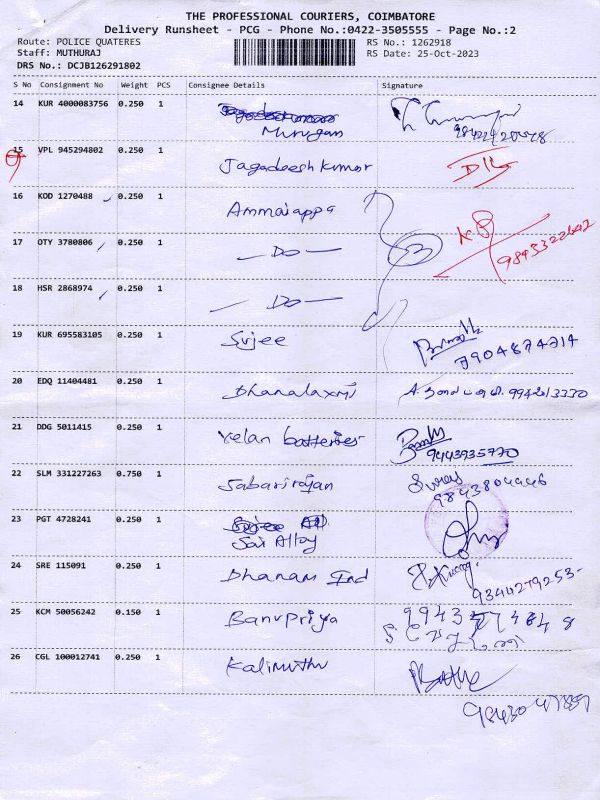 THE PROFESSIONAL COURIERS, COIMBATORE
Delivery Runsheet - PCG - Phone No.:0422-3505555 - Page No.:2
Route: POLICE QUATERES RS No.: 1262918
Staff: MUTHURAJ RS Date: 25-Oct-2023
DRS No.: DCJB126291802
S No Consignment No Weight PCS Consignee Details Signature
14 KUR 4000083756 0.250 1 Murugan
15 VPL 945294802 0.250 1 Jagadeesh kumar
16 KOD 1270488 0.250 1 Ammaiappa
17 OTY 3780806 0.250 1 — Do —
18 HSR 2868974 0.250 1 — Do —
19 KUR 695583105 0.250 1 Sujee
7904874714
20 EDQ 11404481 0.250 1 Dhanalaxmi
21 DDG 5011415 0.250 1 Velan batteries
9443935770
22 SLM 331227263 0.750 1 Sabarirajan
9843804446
23 PGT 4728241 0.250 1 Sai Alloy
24 SRE 115091 0.250 1 Dhanam Ind
9344279253-
25 KCM 50056242 0.150 1 Banupriya
26 CGL 100012741 0.250 1 Kalimuthu